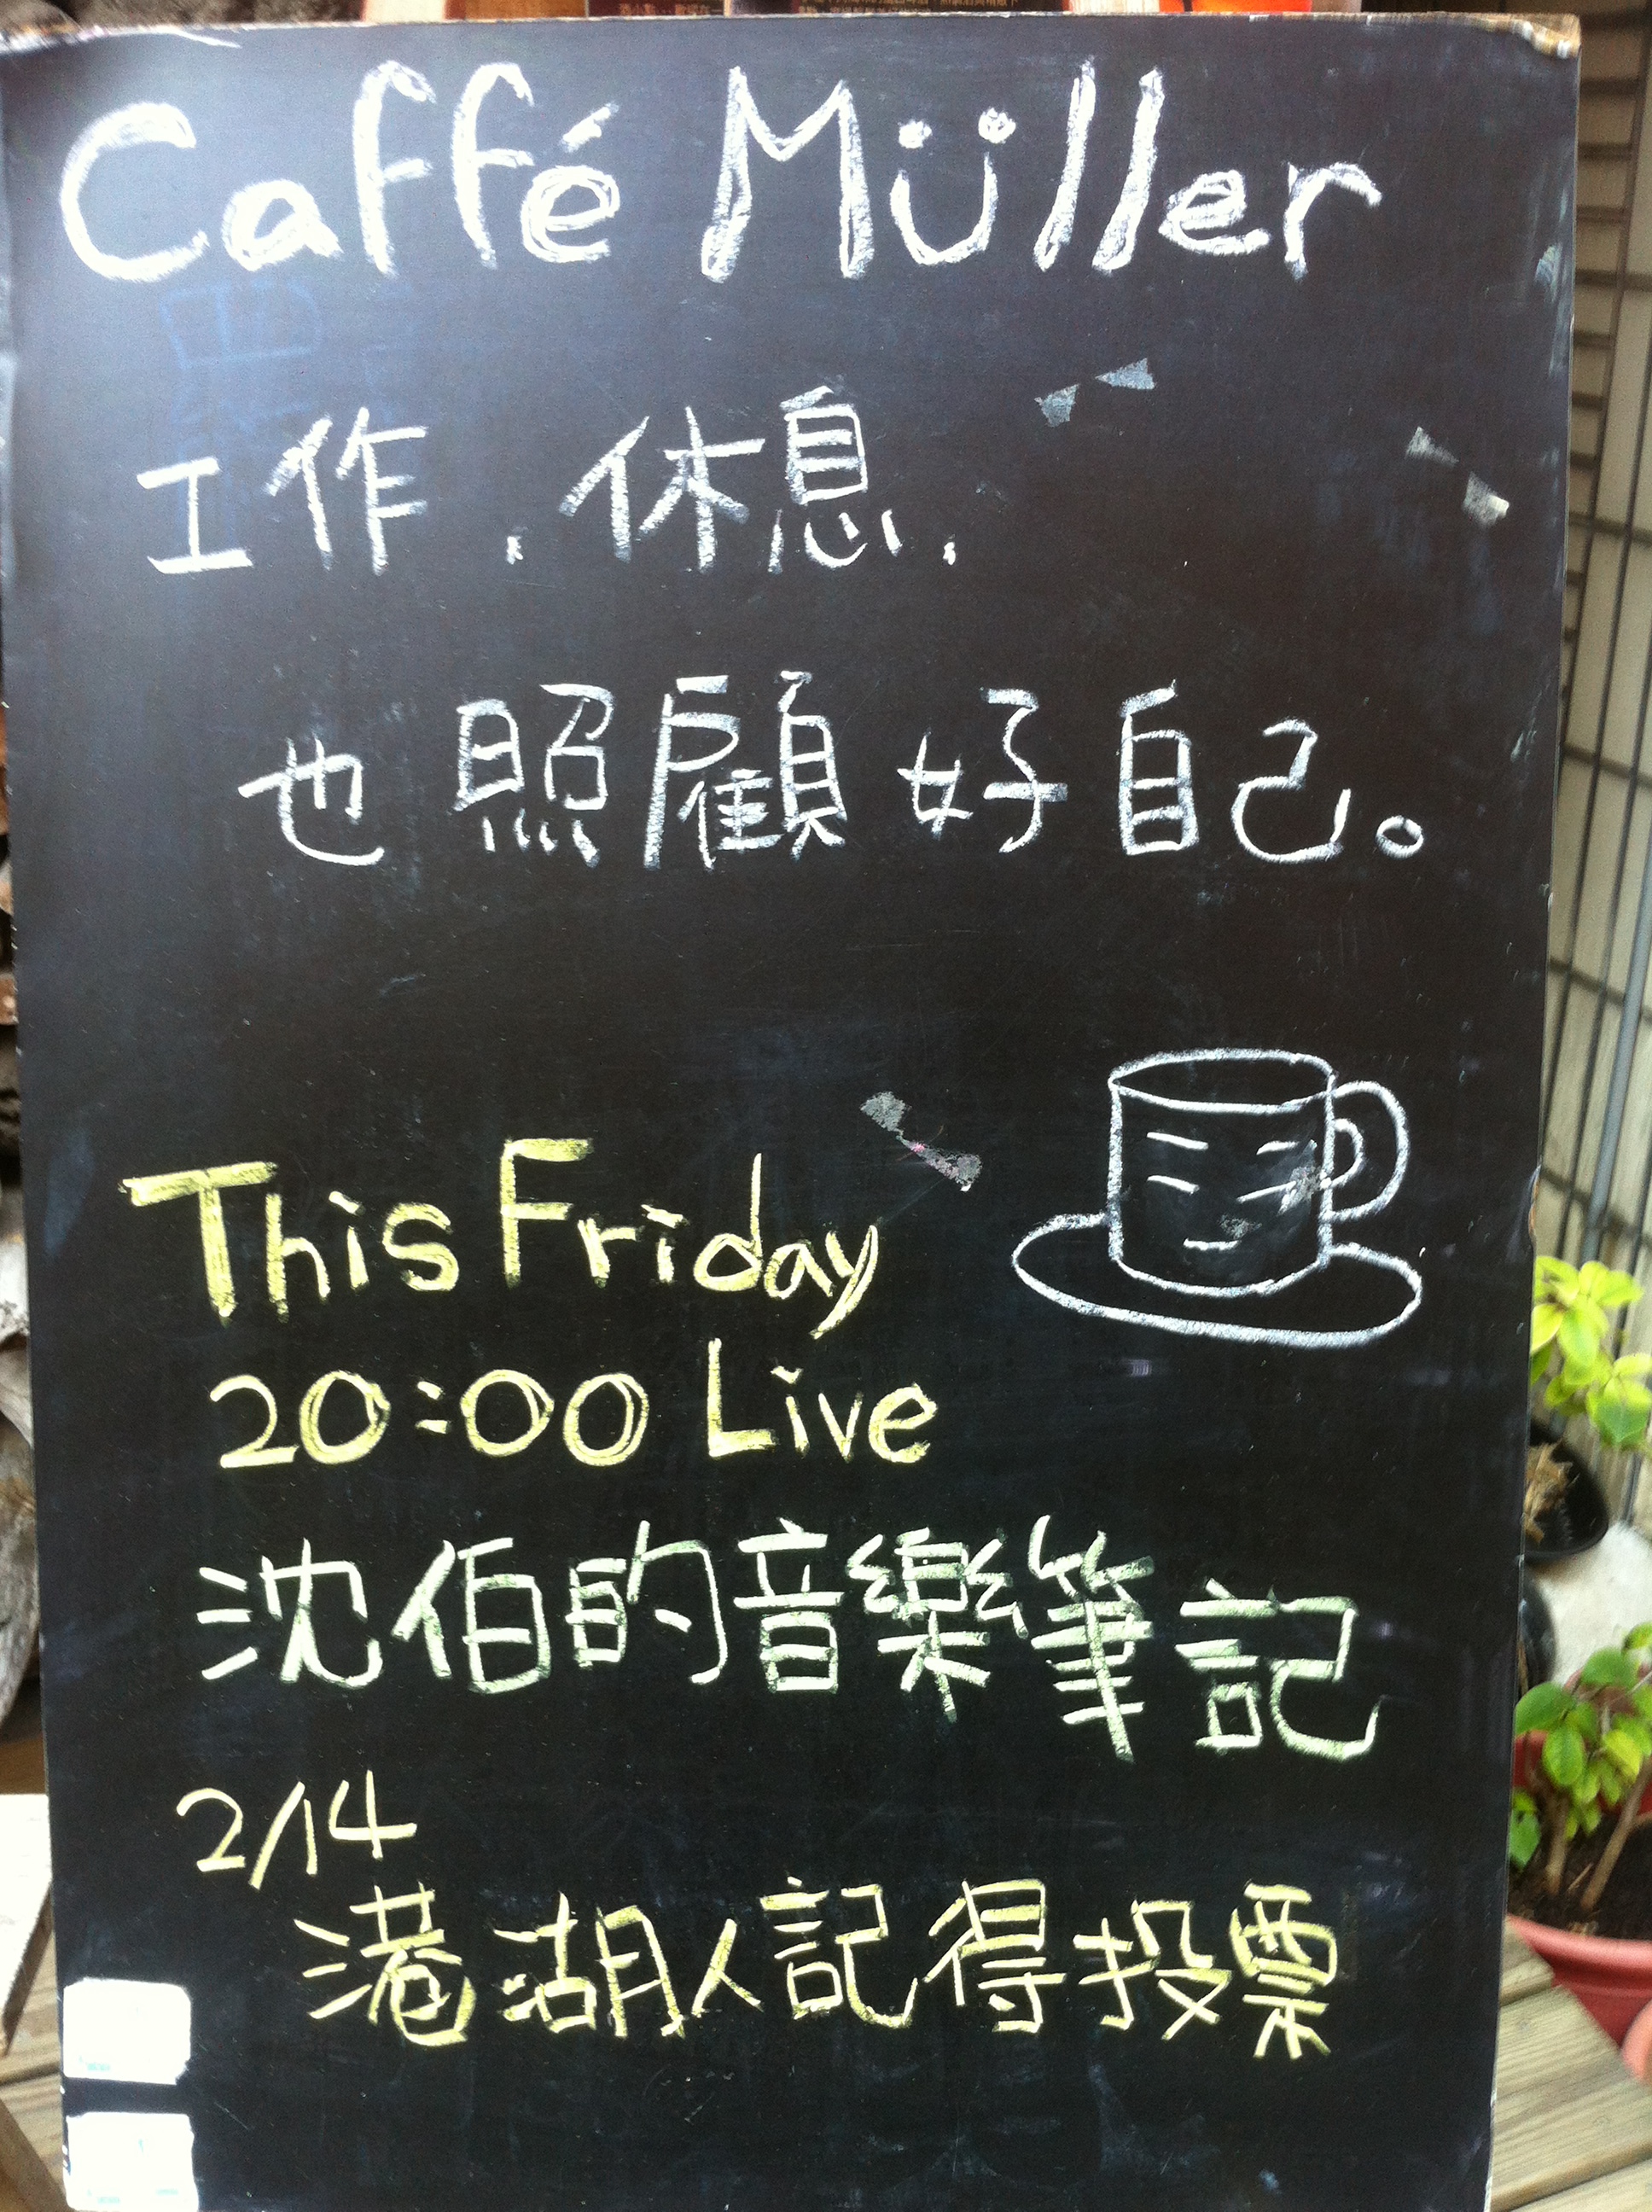 Caffé Müller
工作、休息、
也照顧好自己。
This Friday
20:00 Live
沈伯的音樂筆記
2/14
港湖人記得投票